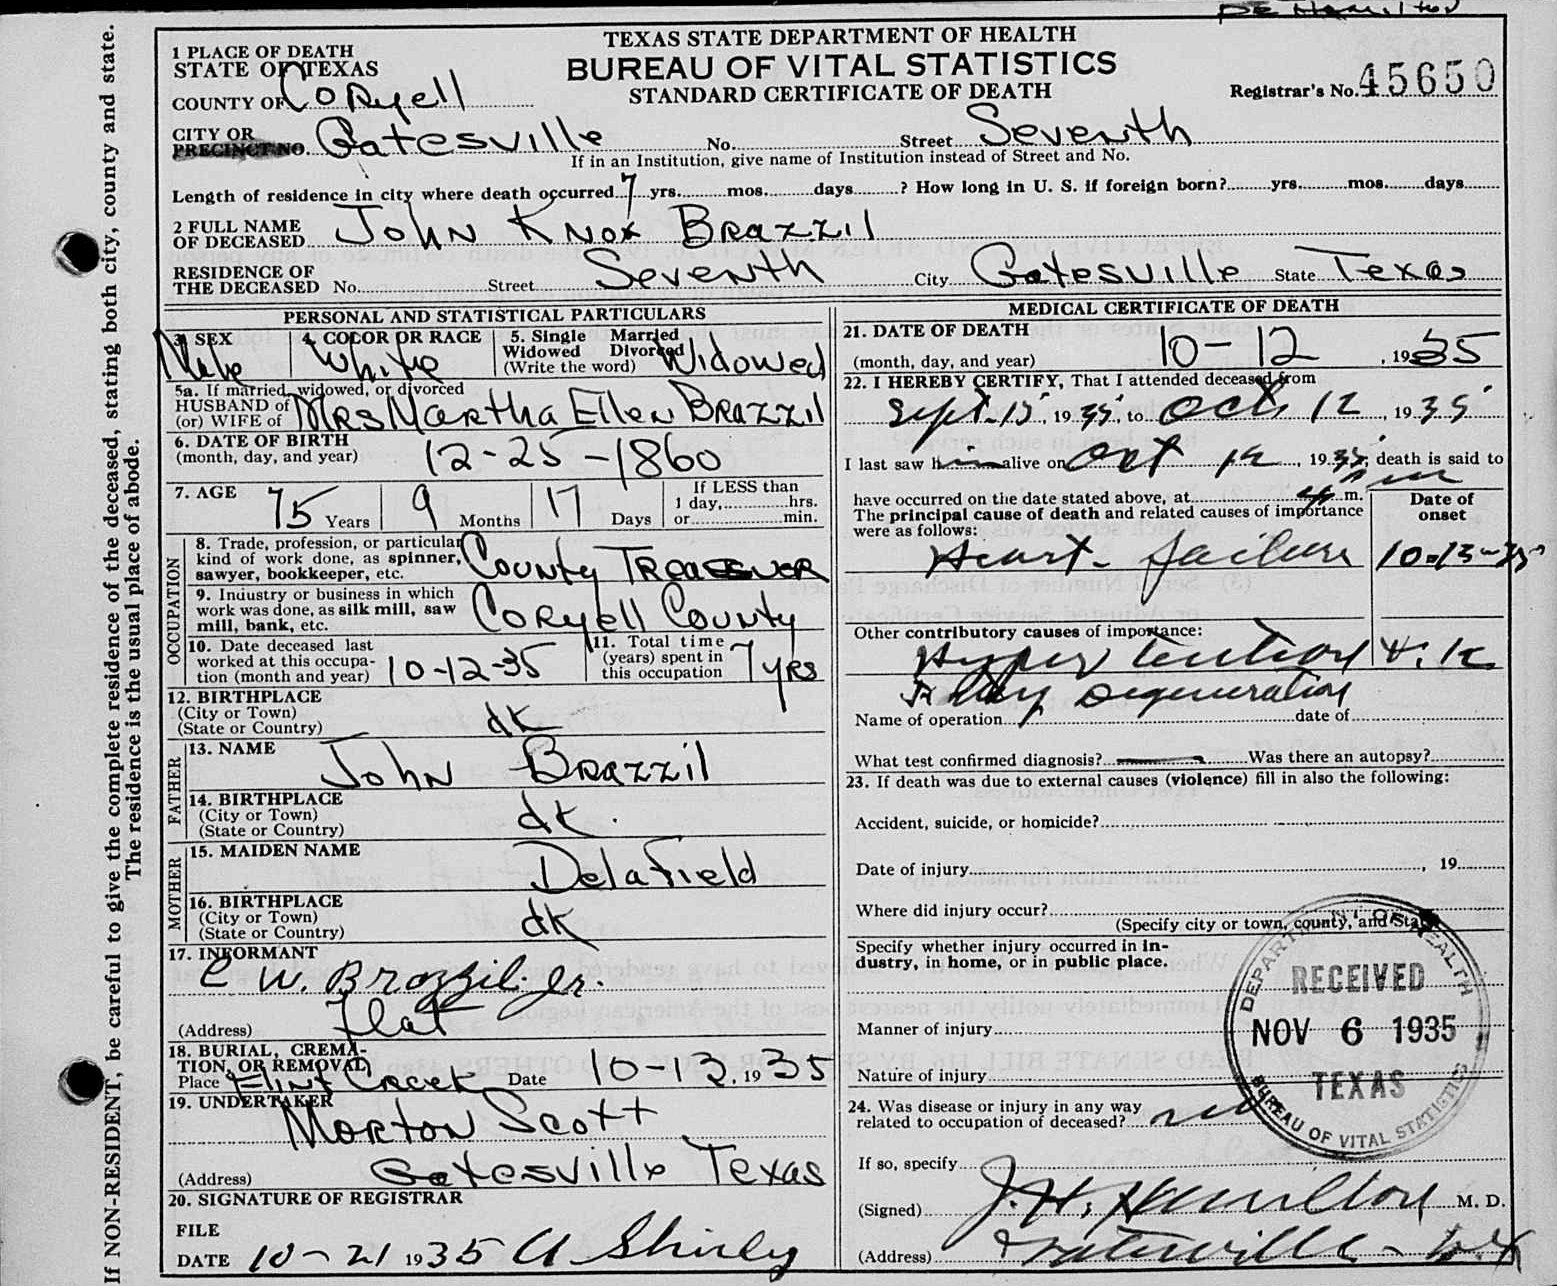 Dr Hamilton
TEXAS STATE DEPARTMENT OF HEALTH
BUREAU OF VITAL STATISTICS
STANDARD CERTIFICATE OF DEATH
Registrar's No. 45650
1 PLACE OF DEATH
STATE OF TEXAS
COUNTY OF Coryell
CITY OR
PRECINCT NO. Gatesville No. Street Seventh
If in an Institution, give name of Institution instead of Street and No.
Length of residence in city where death occurred 7 yrs. mos. days ? How long in U. S. if foreign born? yrs. mos. days
2 FULL NAME
OF DECEASED John Knox Brazzil
RESIDENCE OF
THE DECEASED No. Street Seventh City Gatesville State Texas
PERSONAL AND STATISTICAL PARTICULARS
3. SEX Male
4. COLOR OR RACE White
5. Single Married
Widowed Divorced
(Write the word) Widowed
5a. If married, widowed, or divorced
HUSBAND of
(or) WIFE of Mrs Martha Ellen Brazzil
6. DATE OF BIRTH
(month, day, and year) 12-25-1860
7. AGE 75 Years 9 Months 17 Days
If LESS than
1 day, hrs.
or min.
OCCUPATION
8. Trade, profession, or particular
kind of work done, as spinner,
sawyer, bookkeeper, etc. County Treasurer
9. Industry or business in which
work was done, as silk mill, saw
mill, bank, etc. Coryell County
10. Date deceased last
worked at this occupa-
tion (month and year) 10-12-35
11. Total time
(years) spent in
this occupation 7 yrs
12. BIRTHPLACE
(City or Town)
(State or Country) dk
FATHER
13. NAME John Brazzil
14. BIRTHPLACE
(City or Town)
(State or Country) dk.
MOTHER
15. MAIDEN NAME Delafield
16. BIRTHPLACE
(City or Town)
(State or Country) dk
17. INFORMANT
C W. Brazzil. Jr.
(Address) Flat
18. BURIAL, CREMA-
TION, OR REMOVAL
Place Flint Creek Date 10-13. 1935
19. UNDERTAKER
Morton Scott
(Address) Gatesville Texas
20. SIGNATURE OF REGISTRAR
FILE
DATE 10-21 1935 Shirley
MEDICAL CERTIFICATE OF DEATH
21. DATE OF DEATH
(month, day, and year) 10-12, 1935
22. I HEREBY CERTIFY, That I attended deceased from
Sept. 15, 1935, to Oct 12, 1935
I last saw him alive on Oct 12, 1935; death is said to
have occurred on the date stated above, at m.
The principal cause of death and related causes of importance
were as follows:
Date of
onset
Heart failure 10-13-35
Other contributory causes of importance:
Hypertention
Degeneration
Name of operation date of
What test confirmed diagnosis? Was there an autopsy?
23. If death was due to external causes (violence) fill in also the following:
Accident, suicide, or homicide?
Date of injury , 19
Where did injury occur?
(Specify city or town, county, and State
Specify whether injury occurred in in-
dustry, in home, or in public place.
Manner of injury
Nature of injury
24. Was disease or injury in any way
related to occupation of deceased? no
If so, specify
(Signed) J. H. Hamilton M. D.
(Address) Gatesville - Tex
DEPARTMENT OF HEALTH
RECEIVED
NOV 6 1935
TEXAS
BUREAU OF VITAL STATISTICS
If NON-RESIDENT, be careful to give the complete residence of the deceased, stating both city, county and state.
The residence is the usual place of abode.